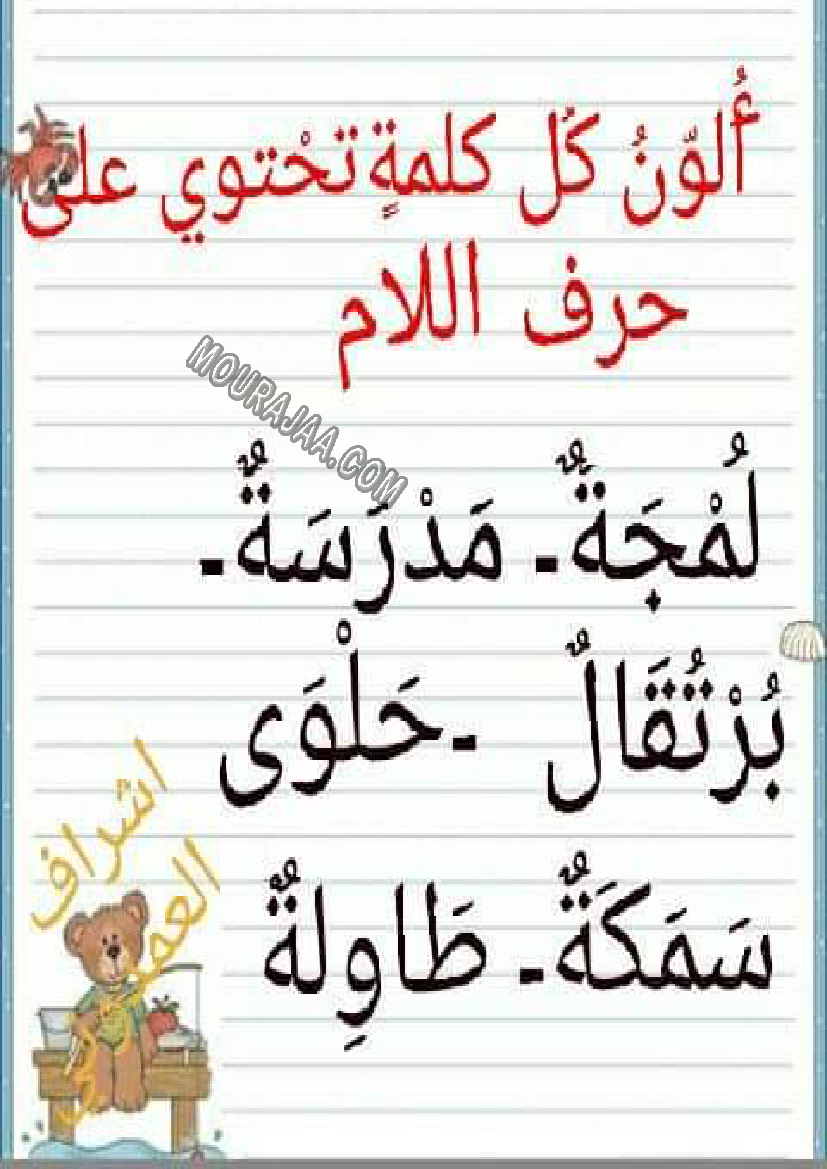 أُلوّنُ كُل كلمةٍ تحْتوي على
حرف اللام
MOURAJAA.COM
لُمْجَةٌ - مَدْرَسَةٌ -
بُرْتُقَالٌ - حَلْوَى
سَمَكَةٌ - طَاوِلةٌ
اشراف